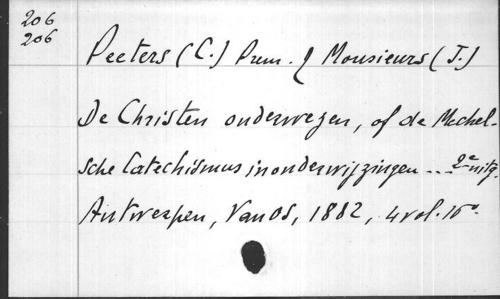 206
206
Peeters (C.) Prem. & Mousieurs (J.)
De Christen onderwezen, of de Mechel-
sche Catechismus in onderwijzingen... 2e uitg.
Antwerpen, Van Os, 1882, 4 vol. 16°